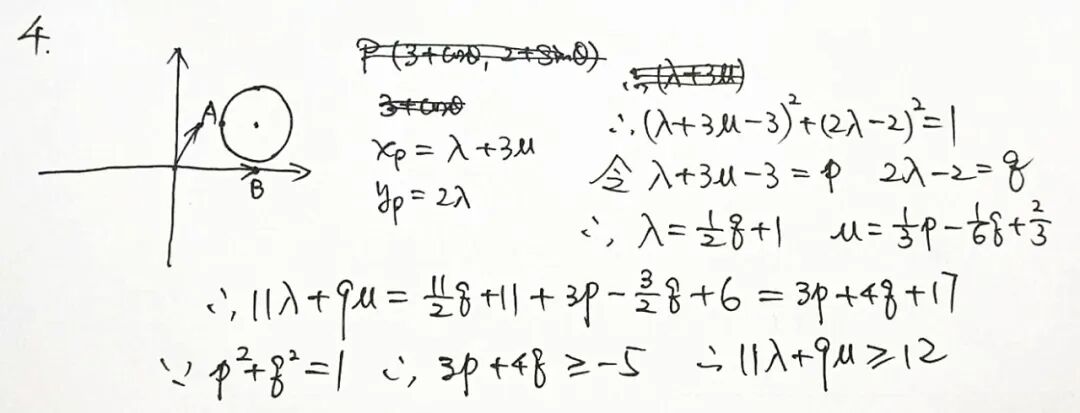 4.
A
B
P(3+cosθ, 2+sinθ)
3+cosθ
x_P = λ+3μ
y_P = 2λ
∴(λ+3μ)
∴(λ+3μ-3)²+(2λ-2)²=1
令 λ+3μ-3=p 2λ-2=q
∴ λ=1/2q+1 μ=1/3p-1/6q+2/3
∴ 11λ+9μ = 11/2q+11+3p-3/2q+6 = 3p+4q+17
∵ p²+q²=1 ∴ 3p+4q≥-5 ∴ 11λ+9μ≥12